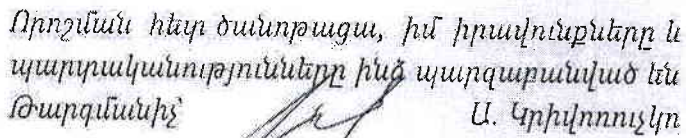 Որոշման հետ ծանոթացա, իմ իրավունքները և
պարտականությունները ինձ պարզաբանված են
Թարգմանիչ Ա. Կրիվոռուչկո